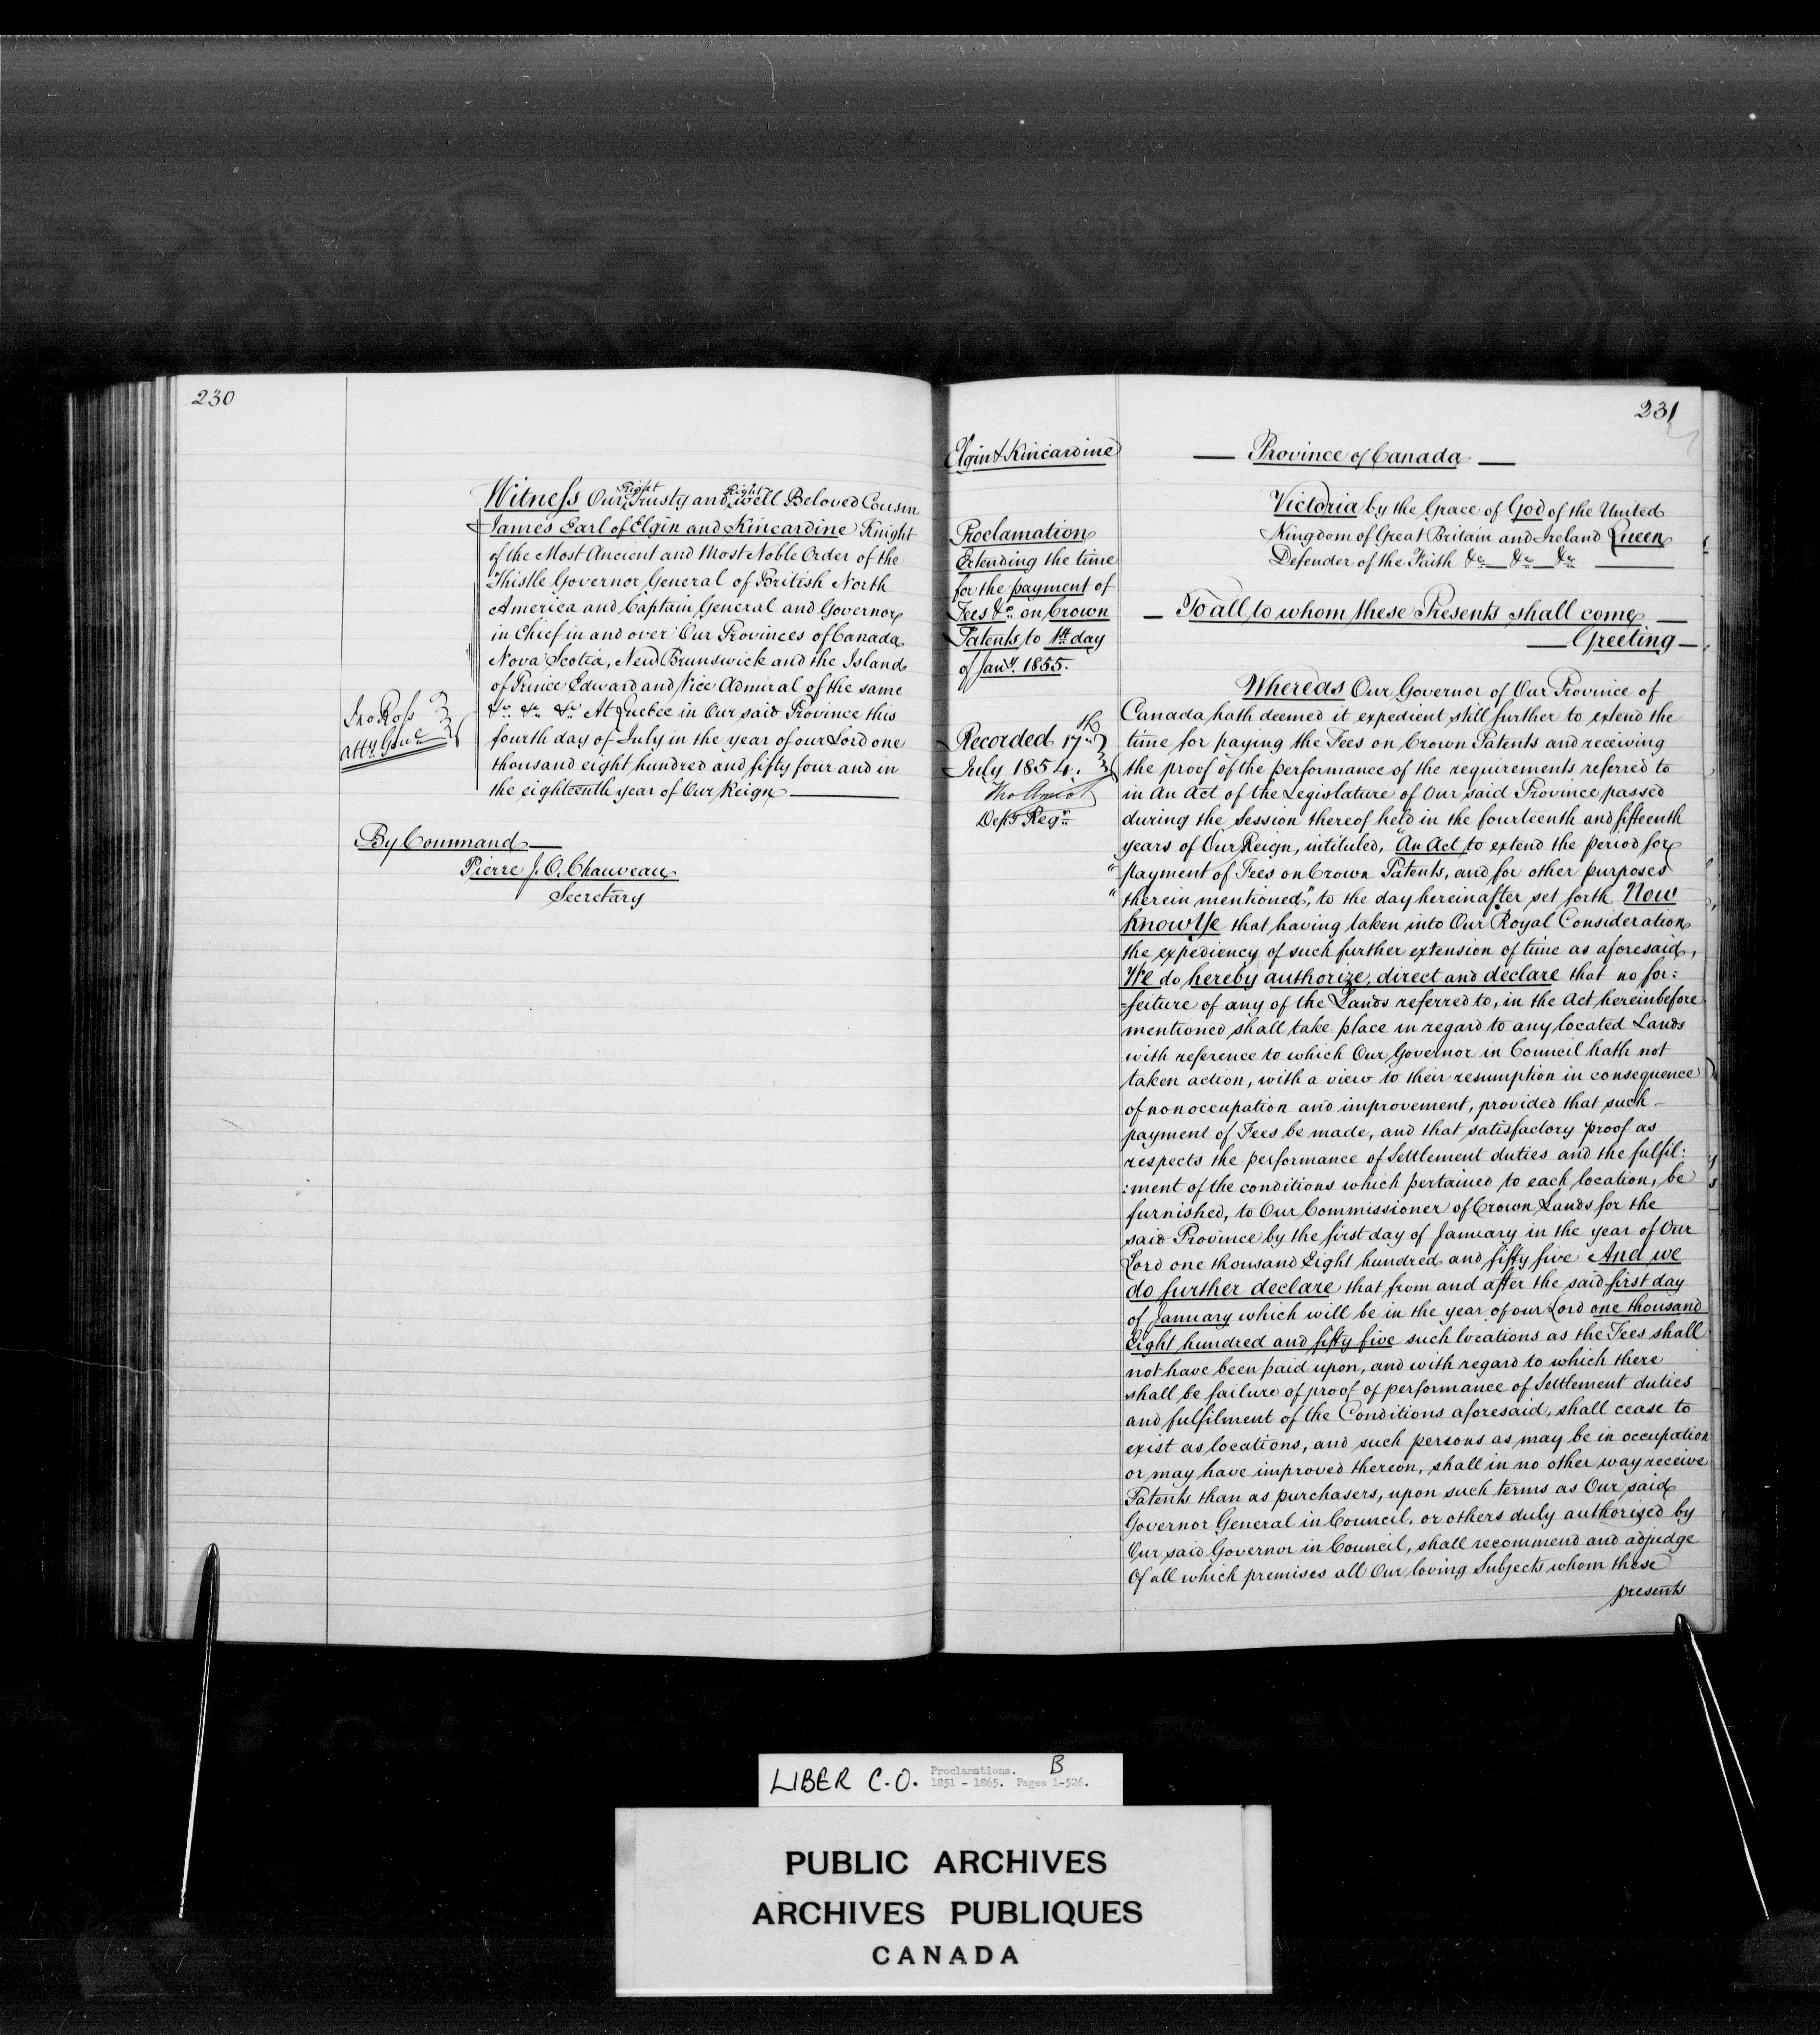 230
Witness Our Right Trusty and Right well Beloved Cousin
James Earl of Elgin and Kincardine Knight
of the Most Ancient and Most Noble Order of the
Thistle Governor General of British North
America and Captain General and Governor
in Chief in and over Our Provinces of Canada
Nova Scotia, New Brunswick and the Island
of Prince Edward and Vice Admiral of the same
&c. &c. &c. At Quebec in Our said Province this
fourth day of July in the year of our Lord one
thousand eight hundred and fifty four and in
the eighteenth year of Our Reign
Jno Ross
Atty Genl
By Command
Pierre J. O. Chauveau
Secretary
231
Elgin & Kincardine
Proclamation
Extending the time
for the payment of
Fees &c. on Crown
Patents to 1st day
of Jany. 1855.
Recorded 17th
July 1854.
Tho Amiot
Depy Regr
Province of Canada
Victoria by the Grace of God of the United
Kingdom of Great Britain and Ireland Queen
Defender of the Faith &c &c &c
To all to whom these Presents shall come
Greeting
Whereas Our Governor of Our Province of
Canada hath deemed it expedient still further to extend the
time for paying the Fees on Crown Patents and receiving
the proof of the performance of the requirements referred to
in An Act of the Legislature of Our said Province passed
during the Session thereof held in the fourteenth and fifteenth
years of Our Reign, intituled, "An Act to extend the period for
"payment of Fees on Crown Patents, and for other purposes
"therein mentioned", to the day hereinafter set forth Now
Know Ye that having taken into Our Royal Consideration
the expediency of such further extension of time as aforesaid,
We do hereby authorize, direct and declare that no for:
=feiture of any of the Lands referred to, in the Act hereinbefore
mentioned shall take place in regard to any located Lands
with reference to which Our Governor in Council hath not
taken action, with a view to their resumption in consequence
of nonoccupation and improvement, provided that such
payment of Fees be made, and that satisfactory proof as
respects the performance of Settlement duties and the fulfil:
:ment of the conditions which pertained to each location, be
furnished, to Our Commissioner of Crown Lands for the
said Province by the first day of January in the year of Our
Lord one thousand Eight hundred and fifty five And we
do further declare that from and after the said first day
of January which will be in the year of our Lord one thousand
Eight hundred and fifty five such locations as the Fees shall
not have been paid upon, and with regard to which there
shall be failure of proof of performance of Settlement duties
and fulfilment of the Conditions aforesaid, shall cease to
exist as locations, and such persons as may be in occupation
or may have improved thereon, shall in no other way receive
Patents than as purchasers, upon such terms as Our said
Governor General in Council, or others duly authorized by
Our said Governor in Council, shall recommend and adjudge
Of all which premises all Our loving Subjects whom these
presents
LIBER C.O. Proclamations. B
1851 - 1865. Pages 1-526.
PUBLIC ARCHIVES
ARCHIVES PUBLIQUES
CANADA